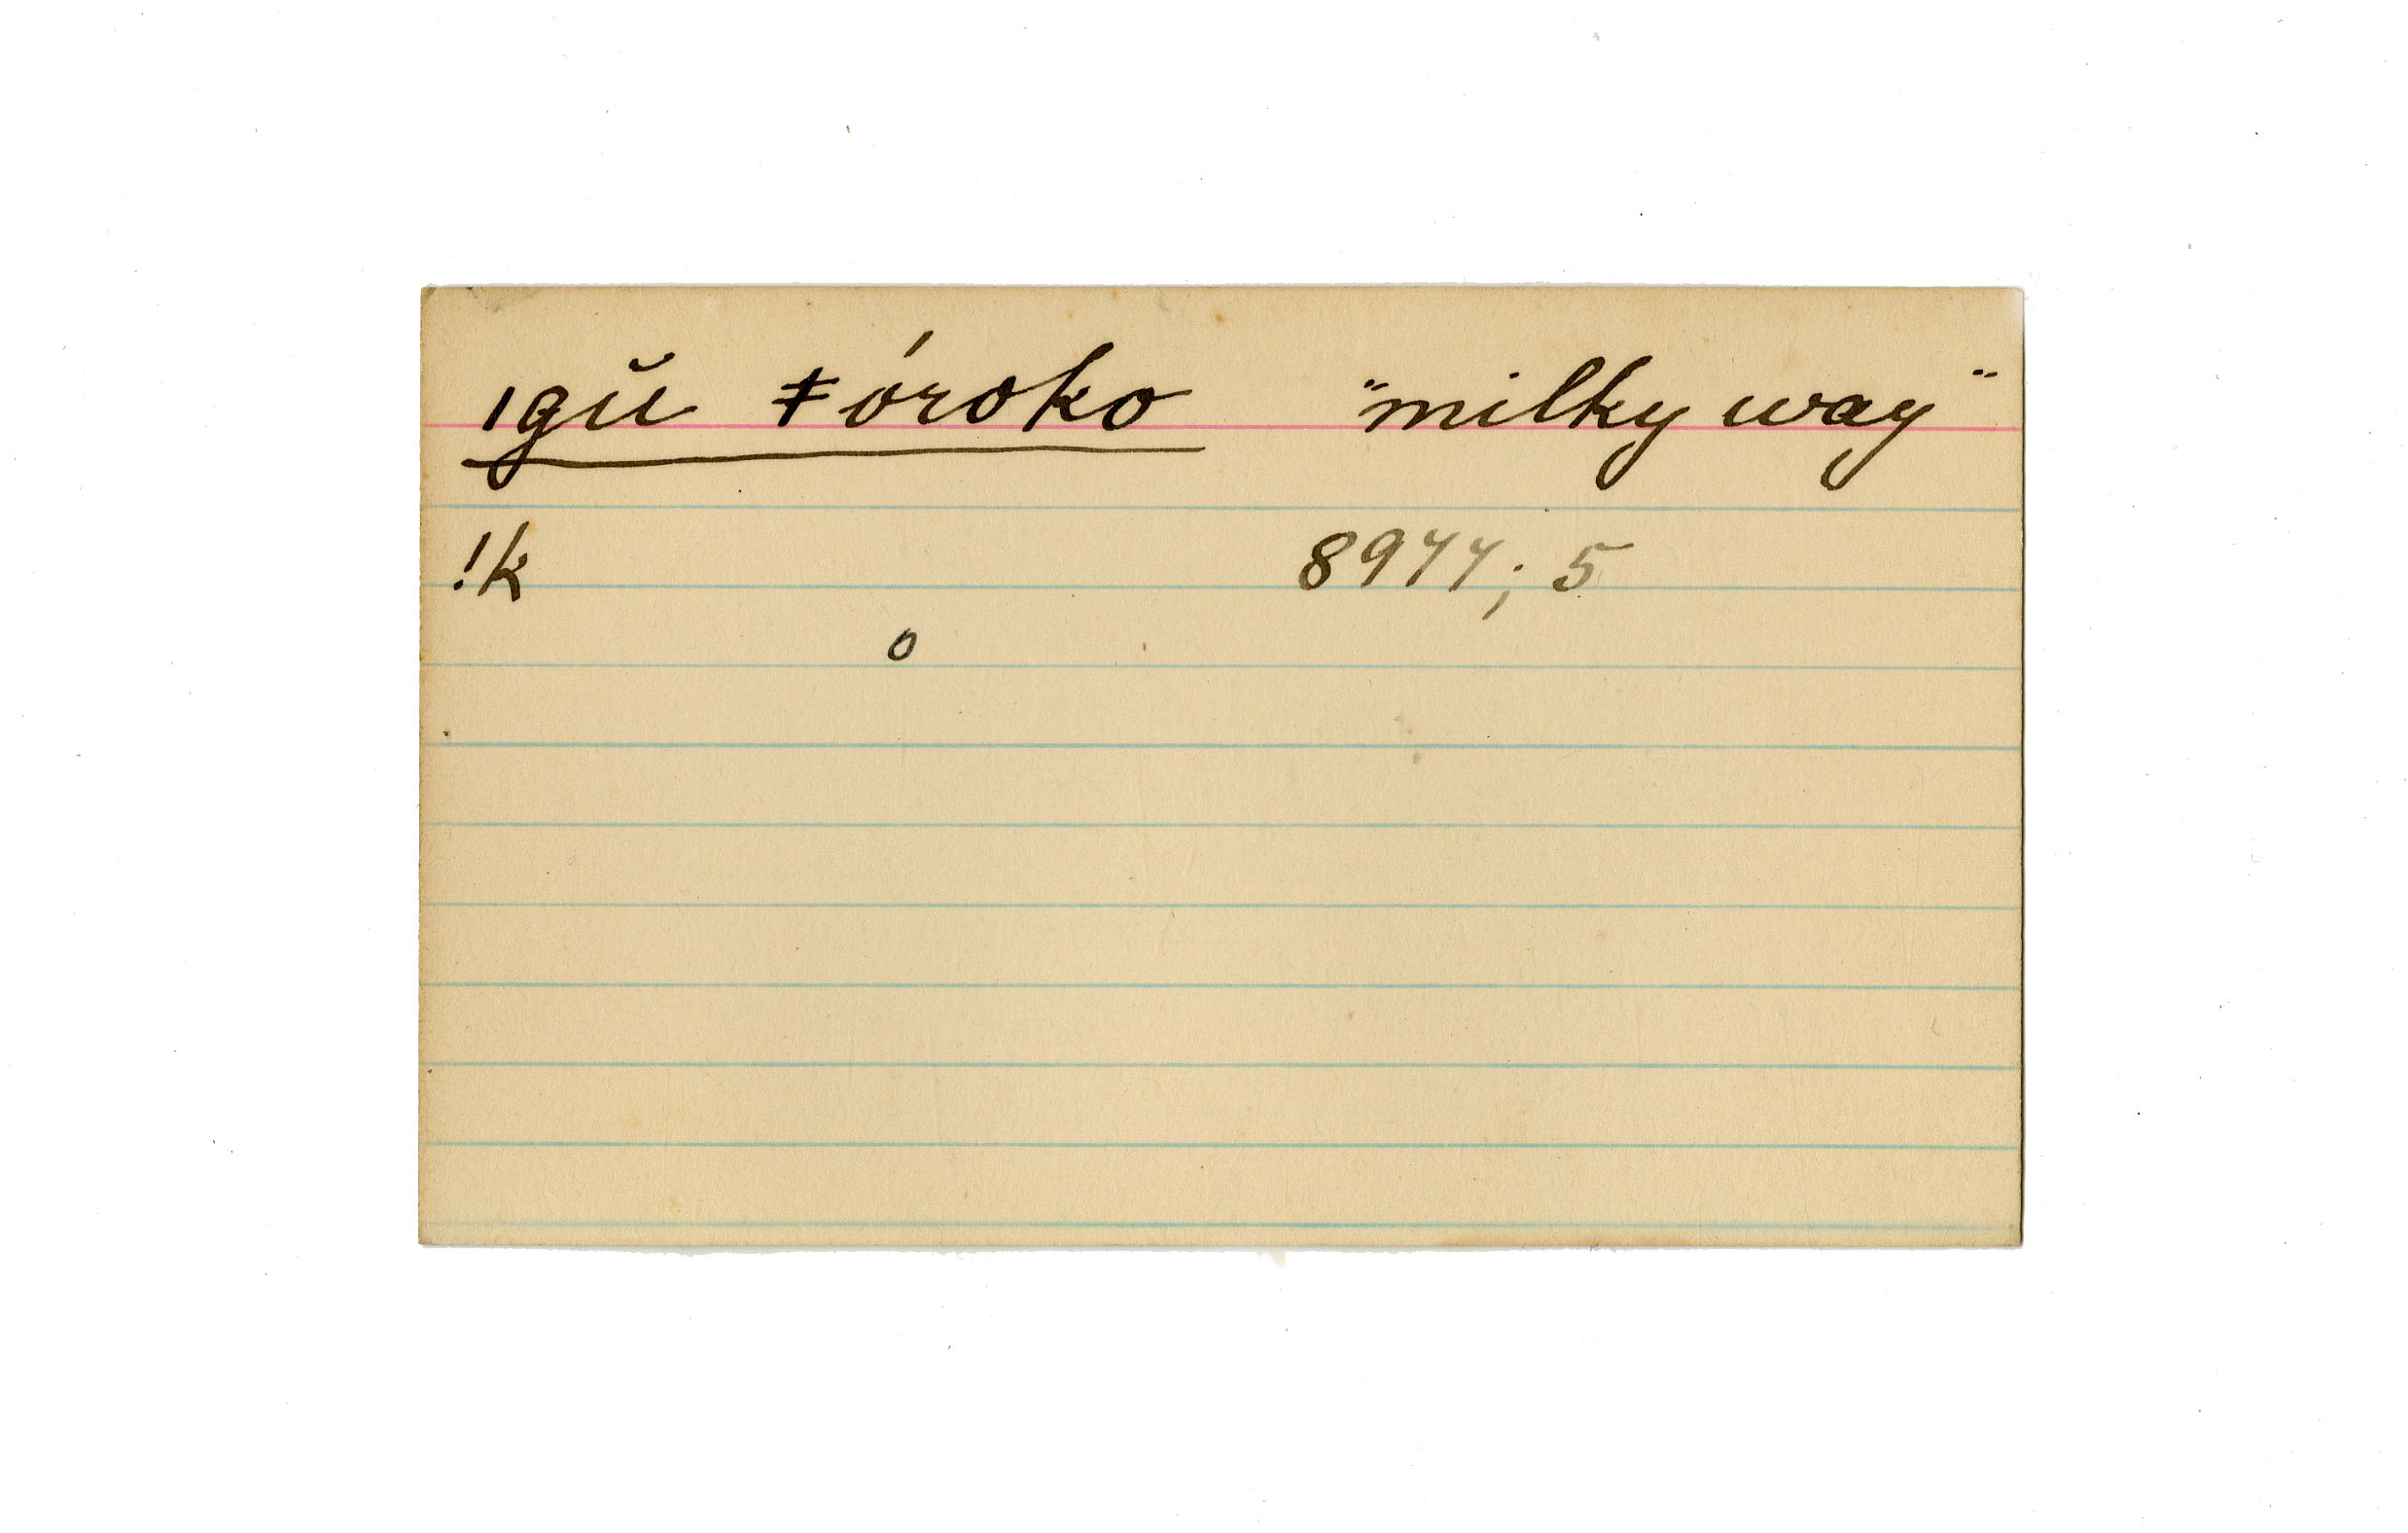 ǀgŭ ǂóroko "milky way"
!k 8977; 5
o